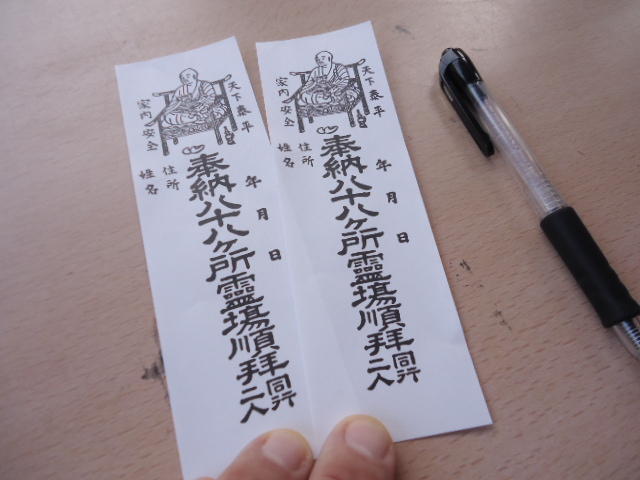 天下泰平
家内安全
年月日
奉納八十八ヶ所霊場順拝
同行二人
住所
姓名
天下泰平
家内安全
年月日
奉納八十八ヶ所霊場順拝
同行二人
住所
姓名